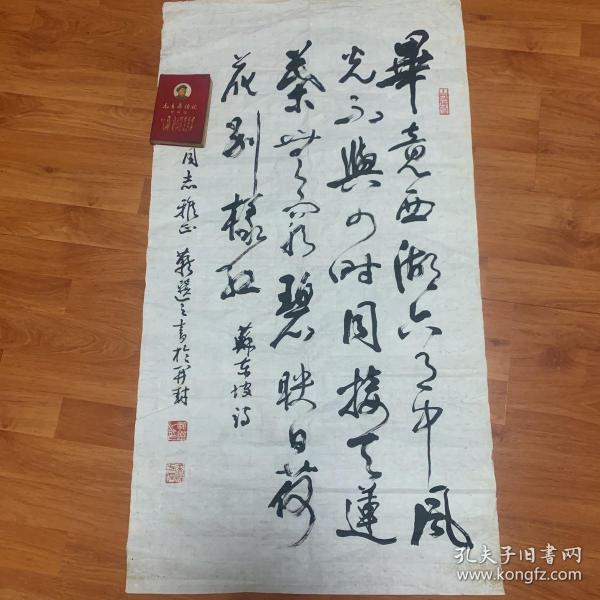 畢竟西湖六月中風
光不與四時同接天蓮
葉無窮碧映日荷
花別樣紅 蘇東坡詩
同志雅正 靳選之書於開封
孔夫子旧书网
www.kongfz.com